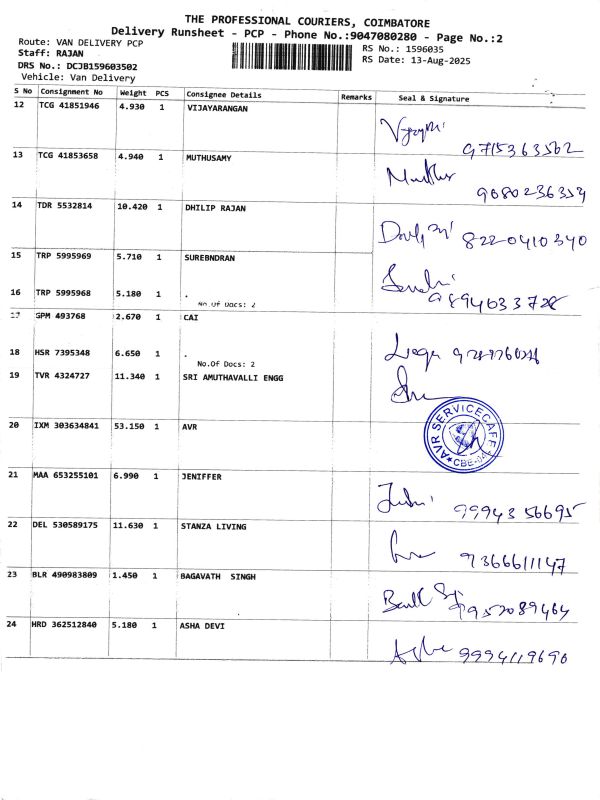 THE PROFESSIONAL COURIERS, COIMBATORE
Delivery Runsheet - PCP - Phone No.:9047080280 - Page No.:2
Route: VAN DELIVERY PCP
RS No.: 1596035
Staff: RAJAN
RS Date: 13-Aug-2025
DRS No.: DCJB159603502
Vehicle: Van Delivery
S No Consignment No Weight PCS Consignee Details Remarks Seal & Signature
12 TCG 41851946 4.930 1 VIJAYARANGAN
9715363562
13 TCG 41853658 4.940 1 MUTHUSAMY
9080236354
14 TDR 5532814 10.420 1 DHILIP RAJAN
8220410340
15 TRP 5995969 5.710 1 SUREBNDRAN
16 TRP 5995968 5.180 1 .
No.Of Docs: 2
17 GPM 493768 2.670 1 CAI
18 HSR 7395348 6.650 1 .
No.Of Docs: 2
19 TVR 4324727 11.340 1 SRI AMUTHAVALLI ENGG
20 IXM 303634841 53.150 1 AVR
AVR SERVICECAFE
21 MAA 653255101 6.990 1 JENIFFER
9994356695
22 DEL 530589175 11.630 1 STANZA LIVING
9366611147
23 BLR 490983809 1.450 1 BAGAVATH SINGH
9952089464
24 HRD 362512840 5.180 1 ASHA DEVI
9994119690